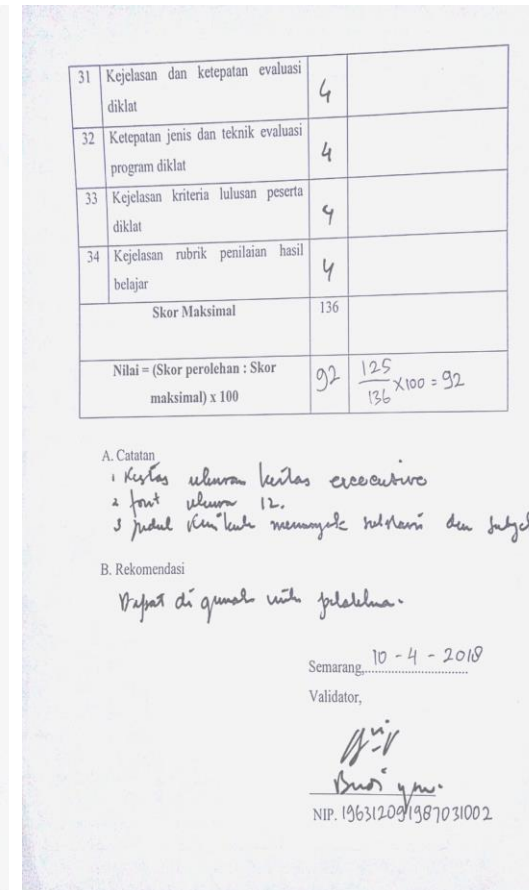 31 Kejelasan dan ketepatan evaluasi
diklat
4
32 Ketepatan jenis dan teknik evaluasi
program diklat
4
33 Kejelasan kriteria lulusan peserta
diklat
4
34 Kejelasan rubrik penilaian hasil
belajar
4
Skor Maksimal 136
Nilai = (Skor perolehan : Skor
maksimal) x 100
92
125
136 x100 = 92
A. Catatan
1 Kertas ukuran kertas
2 font ukuran 12.
3 judul
B. Rekomendasi
Dapat di
Semarang, 10 - 4 - 2018
Validator,
Budi
NIP. 196312091987031002